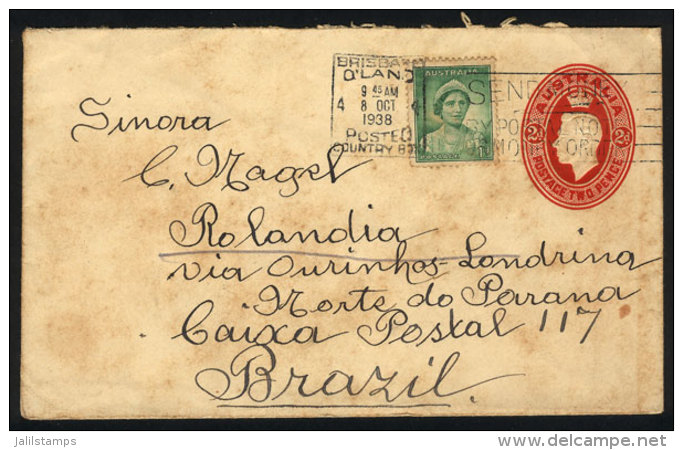 BRISBANE
Q'LAND
9 45 AM
4 8 OCT 4
1938
POSTED
COUNTRY BOX
AUSTRALIA
SEND YOUR
AUSTRALIA
2D 2D
POSTAGE TWO PENCE
Sinora
C. Nagel
Rolandia
via Ourinhos-Londrina
Norte do Parana
Caixa Postal 117
Brazil.
jalilstamps
www.delcampe.net